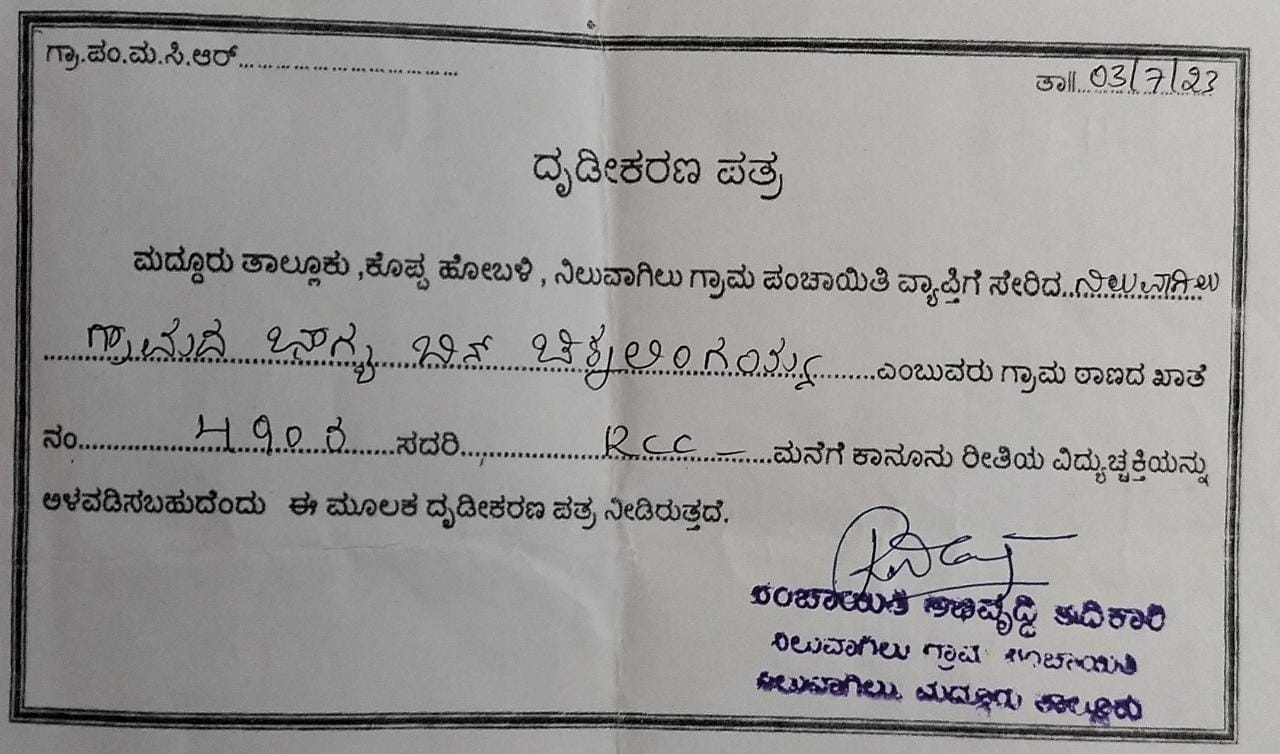 ಗ್ರಾ.ಪಂ.ಮ.ಸಿ.ಆರ್..............................
ತಾ॥...03/7/23
ದೃಡೀಕರಣ ಪತ್ರ
ಮದ್ದೂರು ತಾಲ್ಲೂಕು ,ಕೊಪ್ಪ ಹೋಬಳಿ , ನಿಲುವಾಗಿಲು ಗ್ರಾಮ ಪಂಚಾಯಿತಿ ವ್ಯಾಪ್ತಿಗೆ ಸೇರಿದ..ನಿಲುವಾಗಿಲು
ಗ್ರಾಮದ ಬಿನ್ ಚಿಕ್ಕಲಿಂಗಯ್ಯ.........ಎಂಬುವರು ಗ್ರಾಮ ಠಾಣದ ಖಾತೆ
ನಂ..................ಸದರಿ..................RCC –......ಮನೆಗೆ ಕಾನೂನು ರೀತಿಯ ವಿದ್ಯುಚ್ಚಕ್ತಿಯನ್ನು
ಅಳವಡಿಸಬಹುದೆಂದು ಈ ಮೂಲಕ ದೃಡೀಕರಣ ಪತ್ರ ನೀಡಿರುತ್ತದೆ.
ಪಂಚಾಯಿತಿ ಅಭಿವೃದ್ಧಿ ಅಧಿಕಾರಿ
ನಿಲುವಾಗಿಲು ಗ್ರಾಮ ಪಂಚಾಯಿತಿ
ನಿಲುವಾಗಿಲು, ಮದ್ದೂರು ತಾಲ್ಲೂಕು